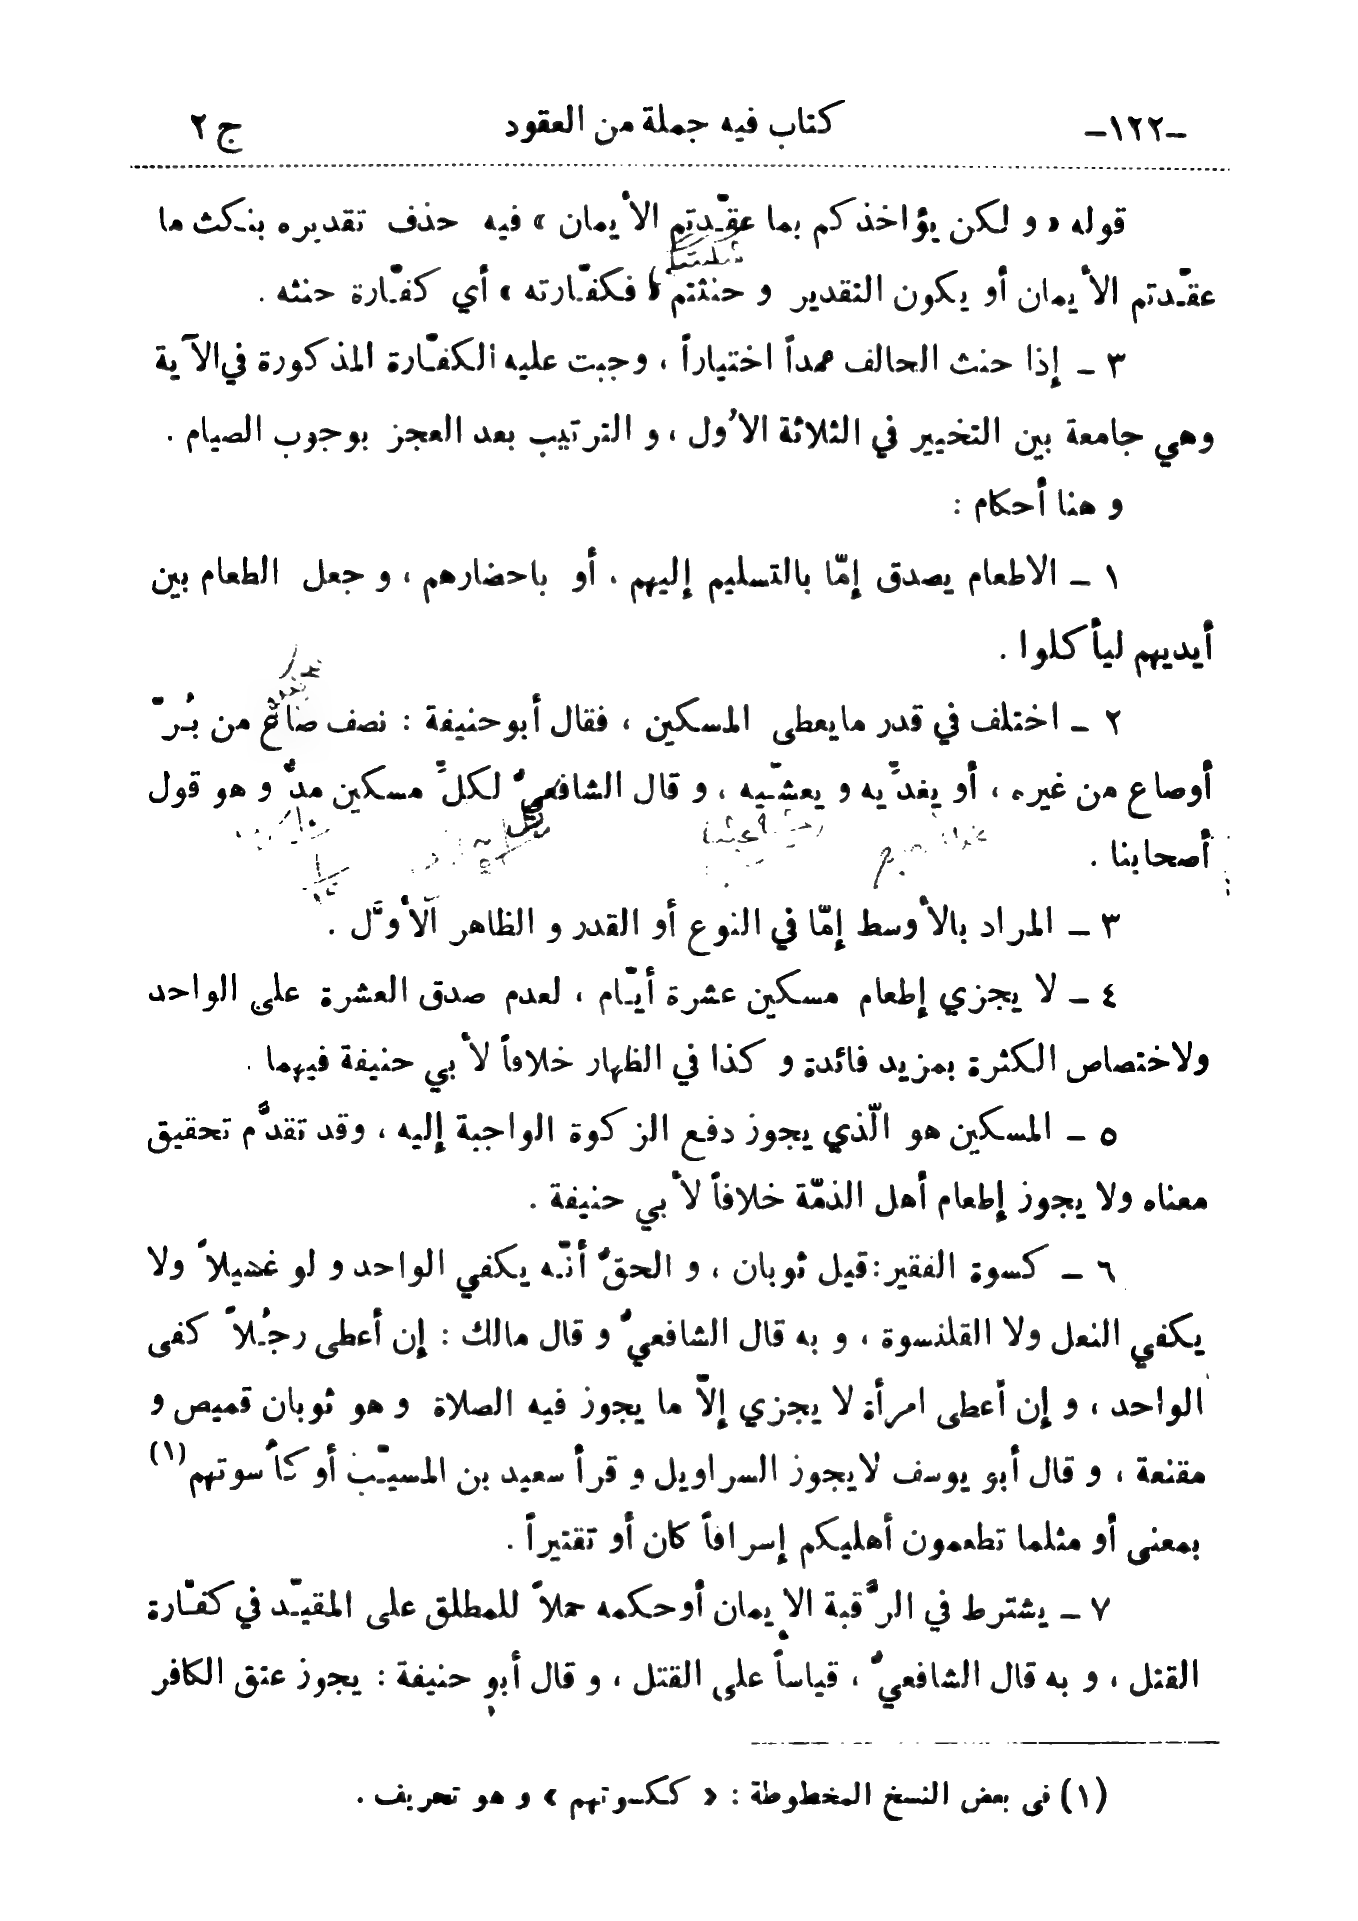 -١٢٢- كتاب فيه جملة من العقود ج ٢
قوله « و لكن يؤاخذكم بما عقّدتم الأيمان » فيه حذف تقديره بنكث ما
عقّدتم الأيمان أو يكون التقدير و حنثتم « فكفّارته » أي كفّارة حنثه .
٣ ـ إذا حنث الحالف عمداً اختياراً ، وجبت عليه الكفّارة المذكورة في الآية
وهي جامعة بين التخيير في الثلاثة الاُول ، و الترتيب بعد العجز بوجوب الصيام .
و هنا أحكام :
١ ـ الاطعام يصدق إمّا بالتسليم إليهم . أو باحضارهم ، و جعل الطعام بين
أيديهم ليأكلوا .
٢ ـ اختلف في قدر مايعطى المسكين ، فقال أبوحنيفة : نصف صاع من بُرّ
أوصاع من غيره ، أو يغدّيه و يعشّيه ، و قال الشافعيّ لكلّ مسكين مدّ و هو قول
أصحابنا .
٣ ـ المراد بالأوسط إمّا في النوع أو القدر و الظاهر الأوّل .
٤ ـ لا يجزي إطعام مسكين عشرة أيّام ، لعدم صدق العشرة على الواحد
ولاختصاص الكثرة بمزيد فائدة و كذا في الظهار خلافاً لأبي حنيفة فيهما .
٥ ـ المسكين هو الّذي يجوز دفع الزكوة الواجبة إليه ، وقد تقدّم تحقيق
معناه ولا يجوز إطعام أهل الذمّة خلافاً لأبي حنيفة .
٦ ـ كسوة الفقير: قيل ثوبان ، و الحقّ أنّه يكفي الواحد و لو غسيلاً ولا
يكفي النعل ولا القلنسوة ، و به قال الشافعيّ و قال مالك : إن أعطى رجُلاً كفى
الواحد ، و إن أعطى امرأة لا يجزي إلاّ ما يجوز فيه الصلاة و هو ثوبان قميص و
مقنعة ، و قال أبو يوسف لايجوز السراويل و قرأ سعيد بن المسيّب أو كأسوتهم (١)
بمعنى أو مثلما تطعمون أهليكم إسرافاً كان أو تقتيراً .
٧ ـ يشترط في الرّقبة الايمان أوحكمه حملاً للمطلق على المقيّد في كفّارة
القتل ، و به قال الشافعيّ ، قياساً على القتل ، و قال أبو حنيفة : يجوز عتق الكافر
(١) فى بعض النسخ المخطوطة : « ككسوتهم » و هو تحريف .